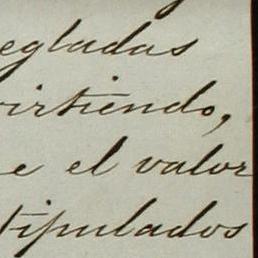 egladas
virtiendo,
e el valor
tipulados